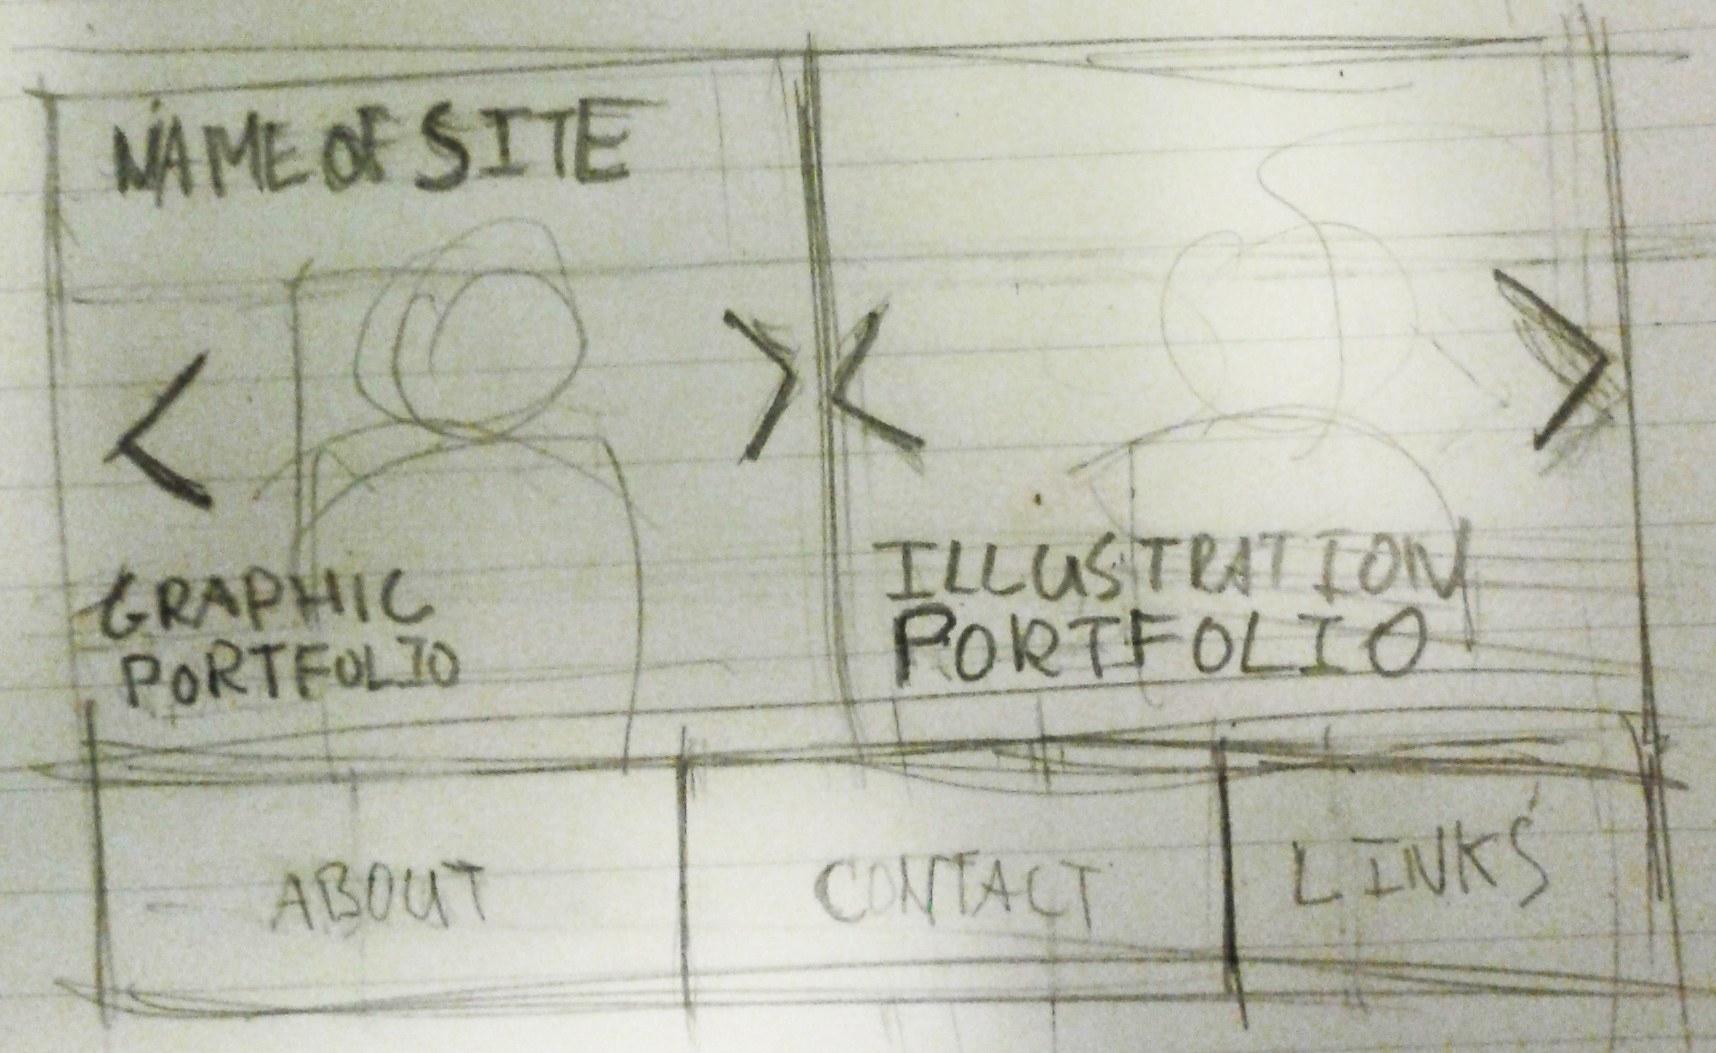 NAME OF SITE
GRAPHIC
PORTFOLIO
ILLUSTRATION
PORTFOLIO
ABOUT
CONTACT
LINKS